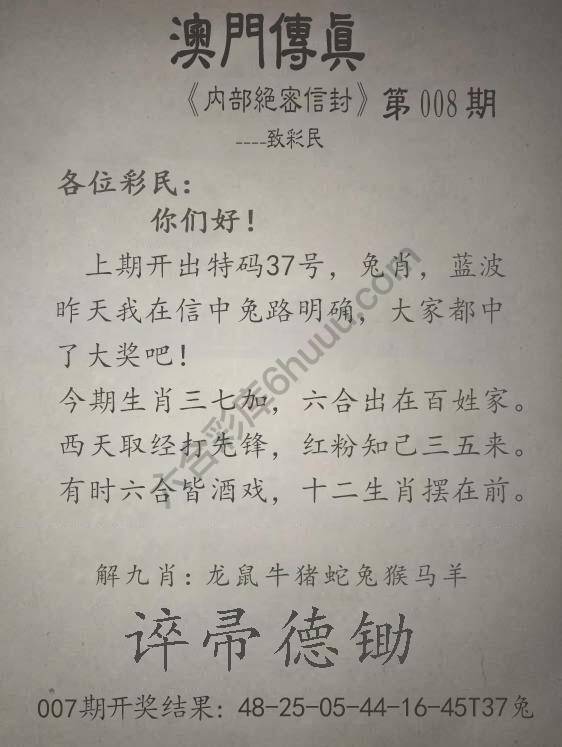 澳門傳眞
《内部絕密信封》第008期
----致彩民
各位彩民：
你们好！
上期开出特码37号，兔肖，蓝波
昨天我在信中兔路明确，大家都中
了大奖吧！
今期生肖三七加，六合出在百姓家。
西天取经打先锋，红粉知己三五来。
有时六合皆酒戏，十二生肖摆在前。
解九肖：龙鼠牛猪蛇兔猴马羊
谇帚德锄
007期开奖结果：48-25-05-44-16-45T37兔
六合彩库6huuu.com